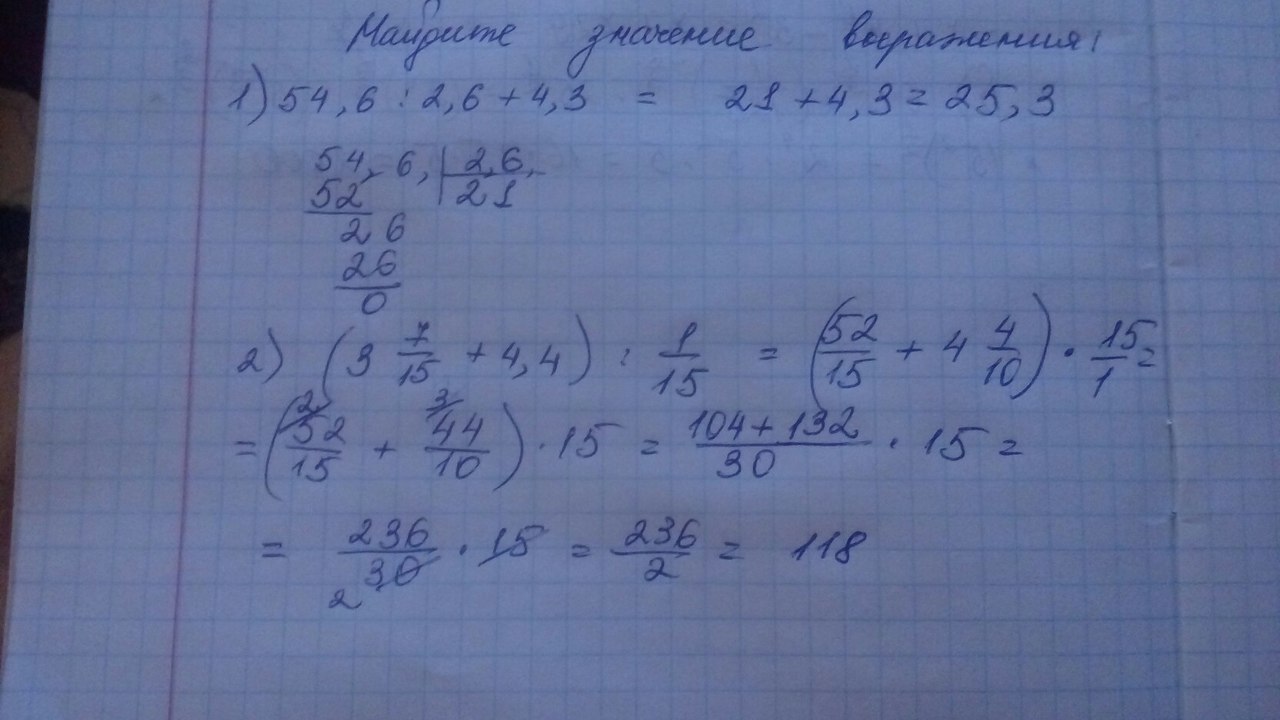 Найдите значение выражения:
1) 54,6 : 2,6 + 4,3 = 21 + 4,3 = 25,3
54,6, | 2,6,
52 21
26
26
0
2) (3 7/15 + 4,4) : 1/15 = (52/15 + 4 4/10) · 15/1 =
= (52/15 + 44/10) · 15 = (104+132)/30 · 15 =
= 236/30 · 15 = 236/2 = 118